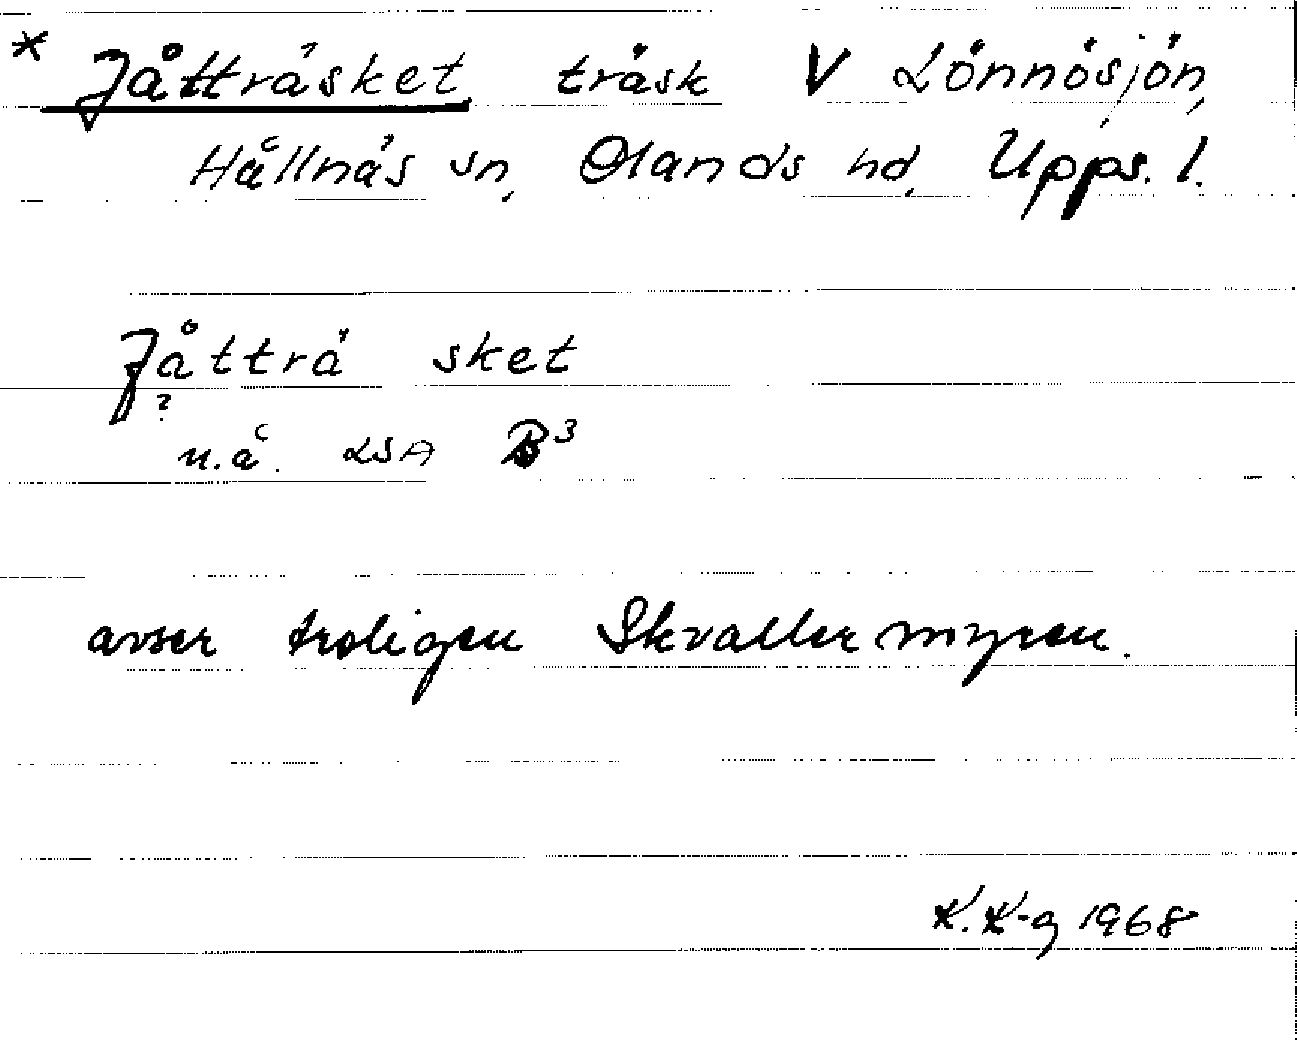 * Jåtträsket, träsk V Lönnösjön,
Hållnäs sn, Olands hd, Upps. l.
Jåtträ sket
?
u.å. LSA B3
avser troligen Skvallermyren.
K.K-g 1968